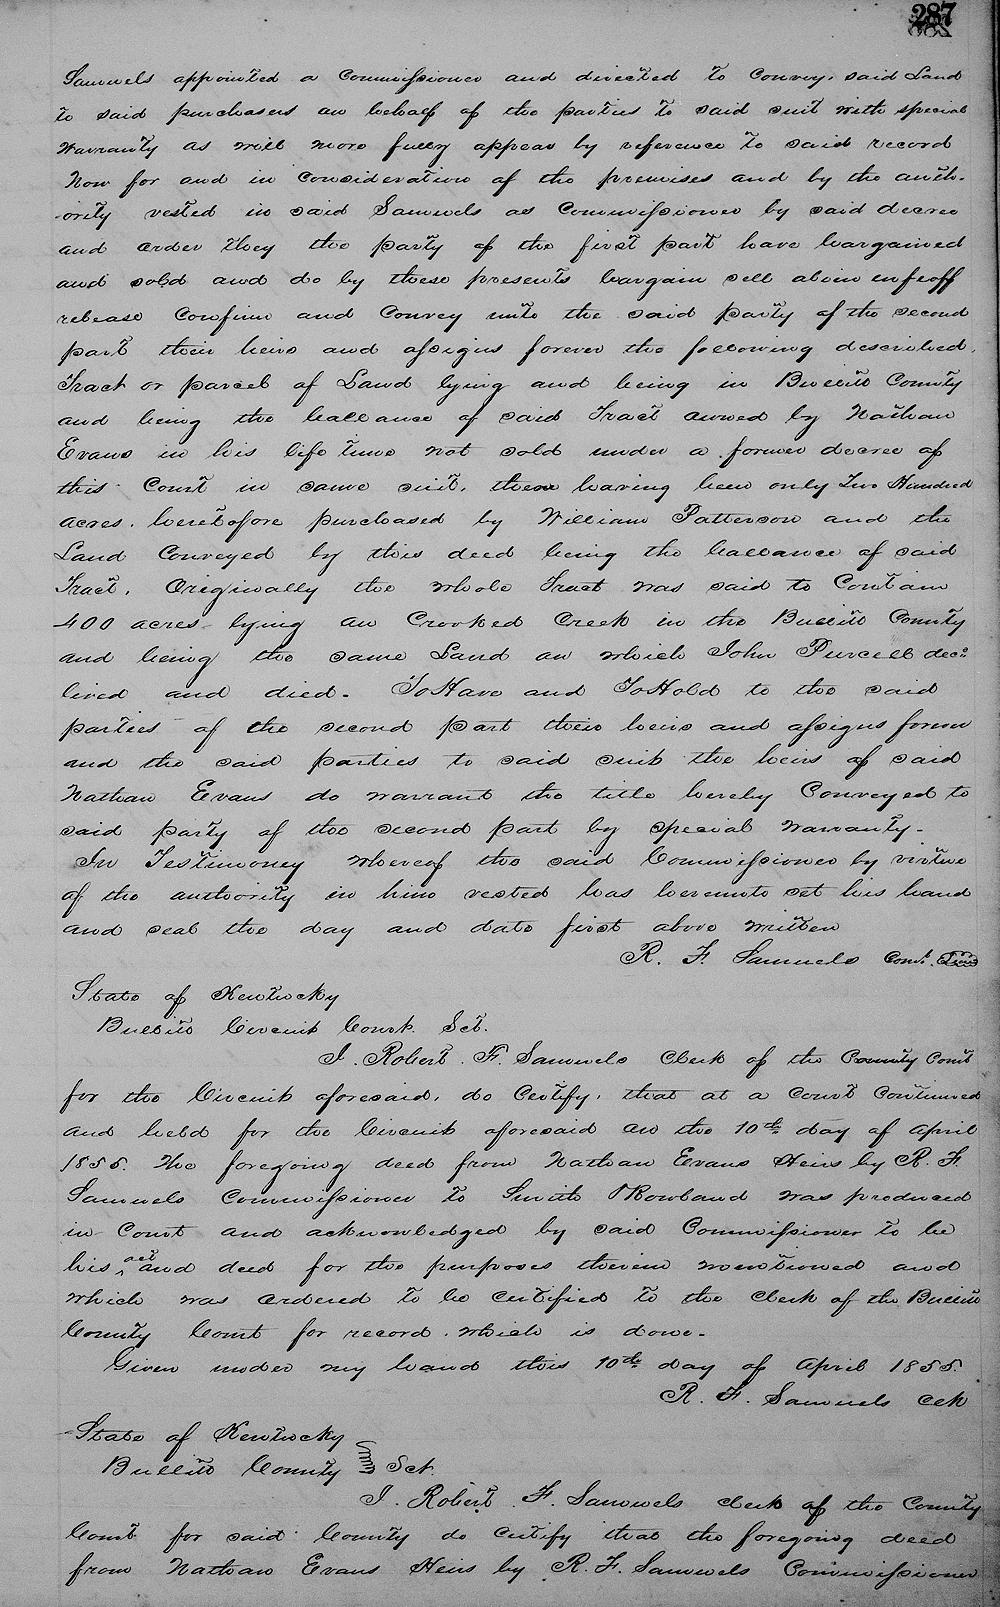 287
Samuels appointed a Commissioner and directed to Convey, said Land
to said purchasers on behalf of the parties to said suit with special
Warranty as will more fully appear by reference to said record
Now for and in Consideration of the premises and by the auth-
-ority vested in said Samuels as Commissioner by said decree
and order they the party of the first part have bargained
and sold and do by these presents bargain sell alien enfeoff
release Confirm and Convey unto the said party of the second
part their heirs and assigns forever the following described
Tract or parcel of Land lying and being in Bullitt County
and being the ballance of said Tract owned by Nathan
Evans in his life time not sold under a former decree of
this Court in same suit, there having been only Two Hundred
acres. heretofore purchased by William Patterson and the
Land Conveyed by this deed being the ballance of said
Tract, Originally the whole Tract was said to Contain
400 acres lying on Crooked Creek in the Bullitt County
and being the same Land on which John Purcell decd
lived and died. To Have and To Hold to the said
parties of the second part their heirs and assigns forever
and the said parties to said suit the heirs of said
Nathan Evans do warrant the title hereby Conveyed to
said party of the second part by special Warranty-
In Testimoney whereof the said Commissioner by virtue
of the authority in him vested has hereunto set his hand
and seal the day and date first above written
R. F. Samuels Comr. Seal
State of Kentucky
Bullitt Circuit Court. Sct.
I. Robert F. Samuels Clerk of the County Court
for the Circuit aforesaid, do Certify, that at a Court Continued
and held for the Circuit aforesaid on the 10th day of April
1855. The foregoing deed from Nathan Evans Heirs by R. F.
Samuels Commissioner to Smith & Rowland was produced
in Court and acknowledged by said Commissioner to be
his act and deed for the purposes therein mentioned and
which was ordered to be certified to the Clerk of the Bullitt
County Court for record. which is done-
Given under my hand this 10th day of April 1855.
R. F. Samuels Clk
State of Kentucky
Bullitt County Sct.
I. Robert F. Samuels Clerk of the County
Court for said County do certify that the foregoing deed
from Nathan Evans Heirs by R. F. Samuels Commissioner